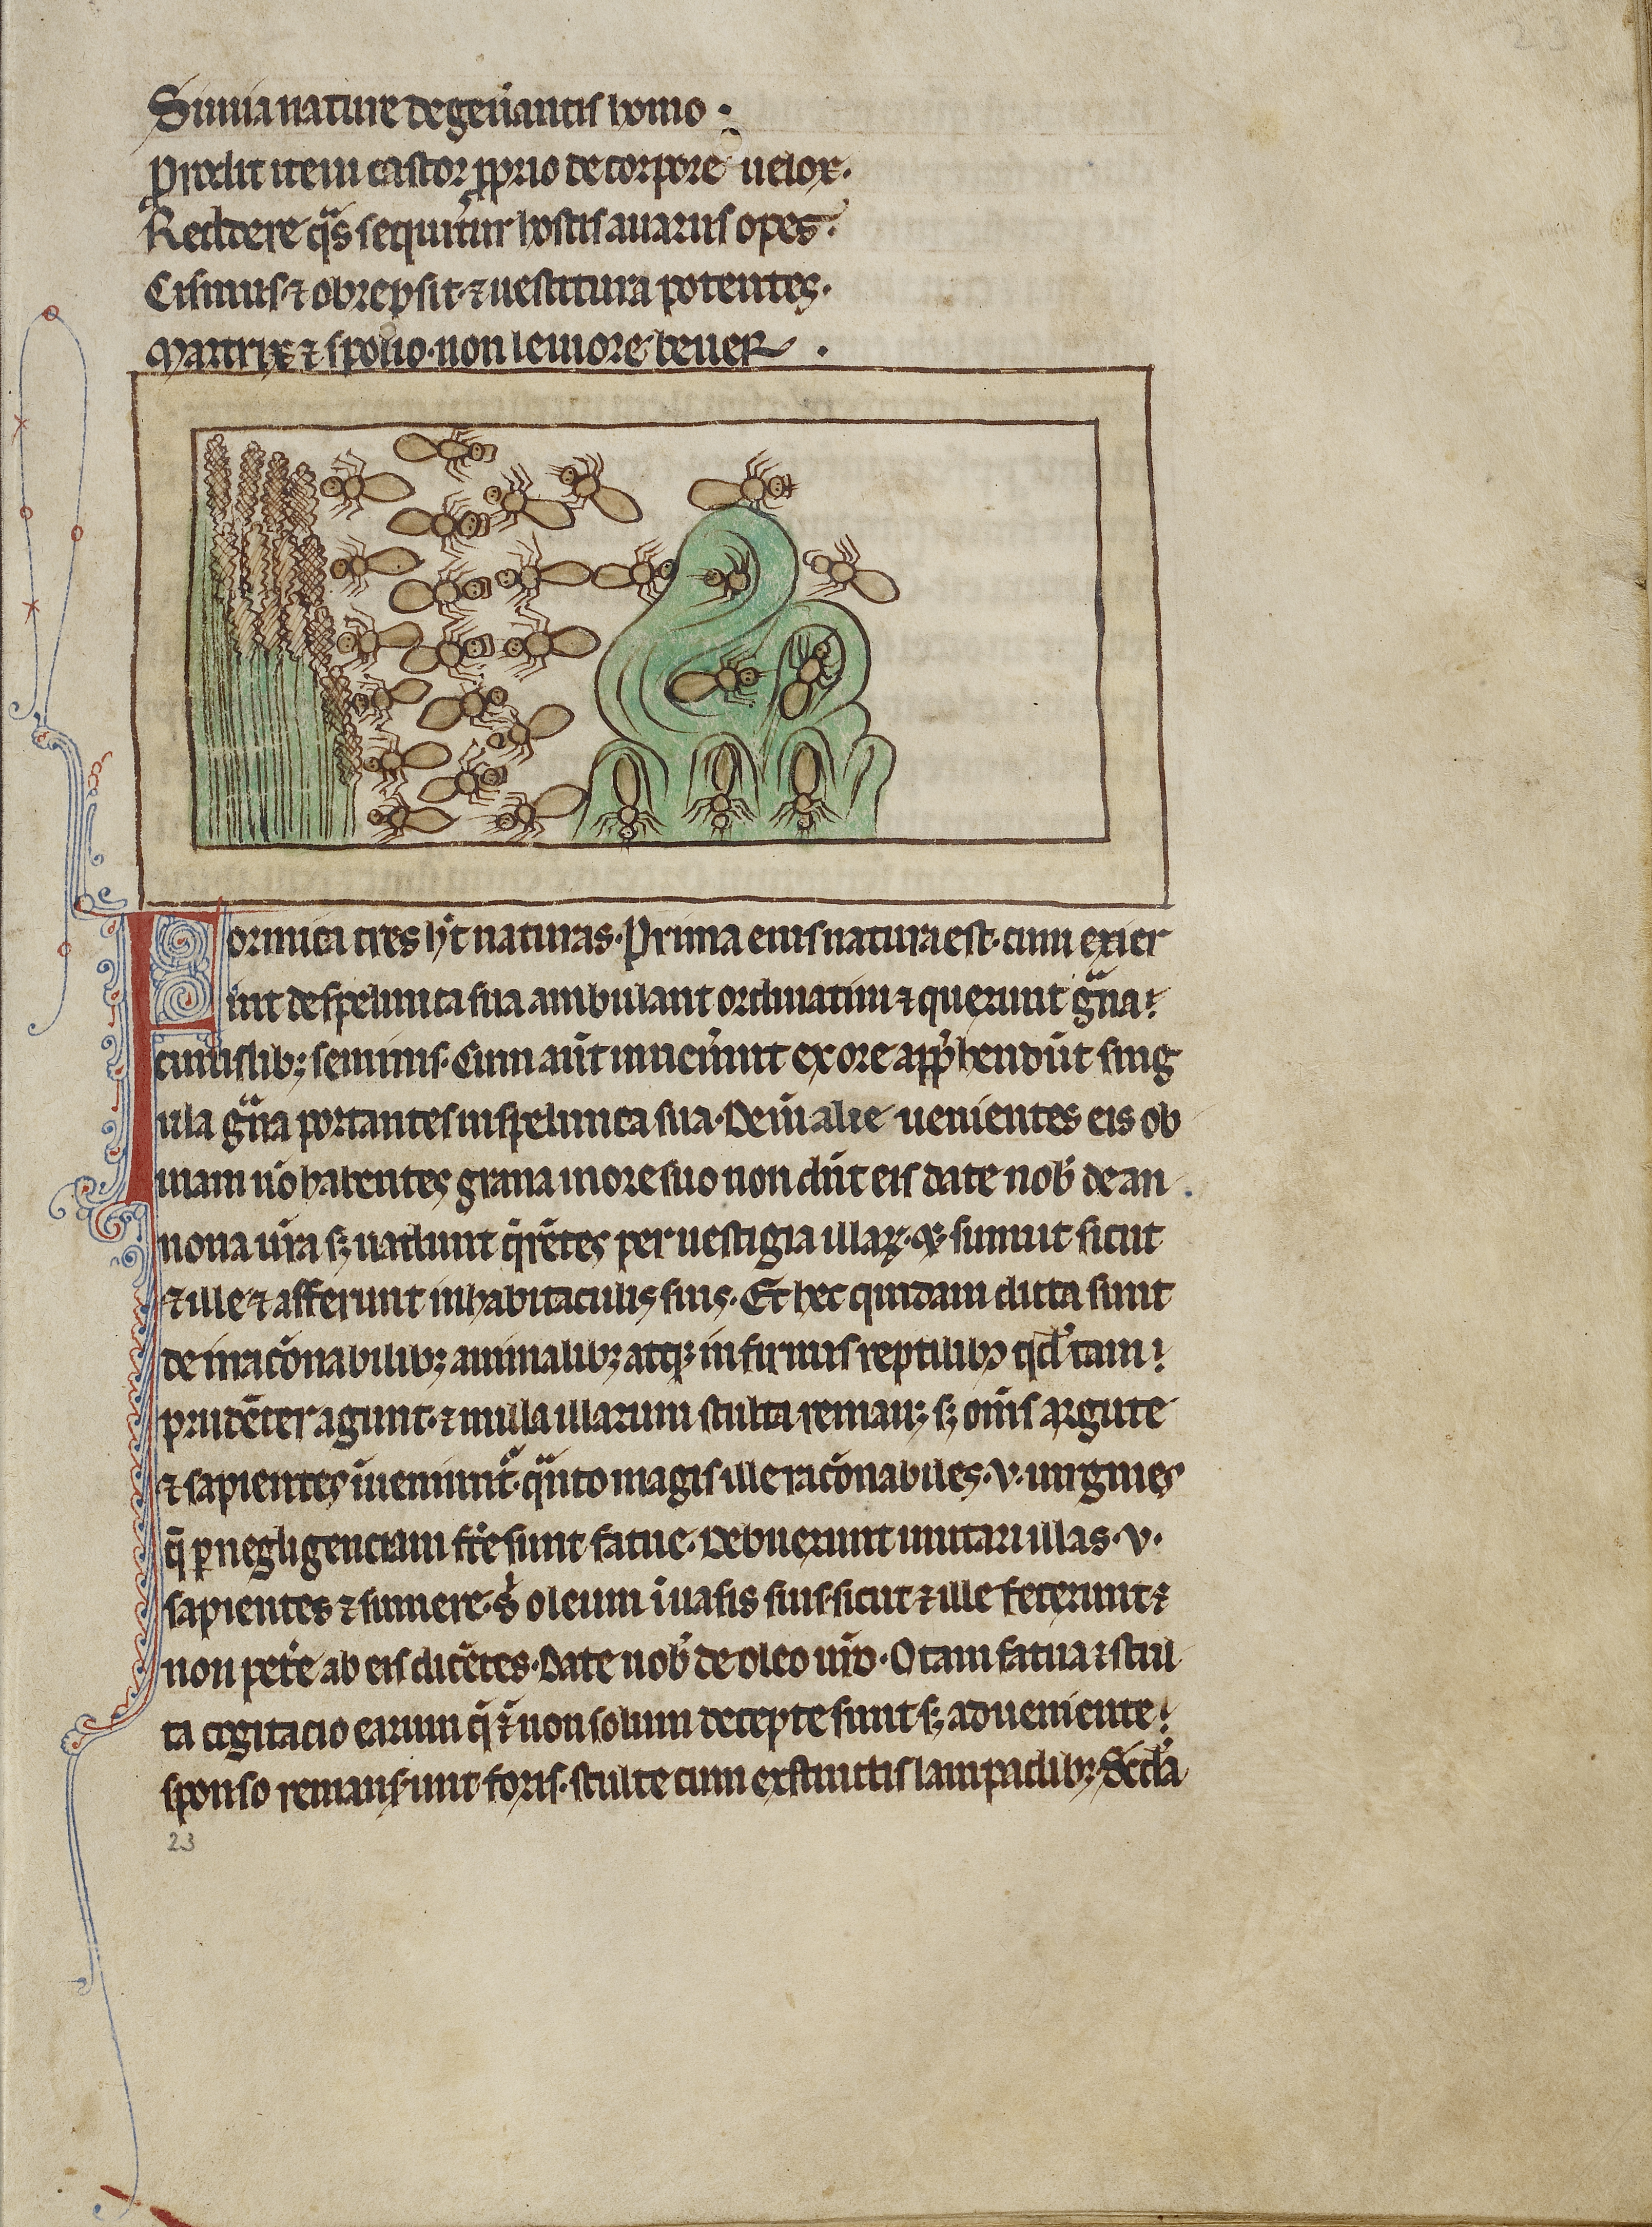 Simia nature degen̄antis homo .
Prodit item castor ꝓprio de corpore uelox.
Reddere q̄s sequitur hostis auarus opes.
Cisimus ⁊ obrepsit ⁊ uestitura potentes.
Martrix ⁊ spolio non leuiore beuer .
Formica tres ht̄ naturas. Prima eius natura est. cum exier
int de spelunca sua ambulant ordinatim ⁊ querunt gͣna
cuiuslibꝫ seminis. Cum aut̄ inuen̄int ex ore app̄hendūt sing
ula gͣna portantes in spelunca sua. Deīn alie uenientes eis ob
uiam nō habentes grana more suo non dn̄t eis date nob̄ de an
nona ur̄a sꝫ uadunt q̄rētes per uestigia illaꝝ. sumunt sicut
⁊ ille ⁊ afferunt in habitaculis suis. Et hec quidam dicta sunt
de irrac̄onabilibꝫ animalibꝫ atqꝫ infirmis reptilibꝫ qd̓ tam
prudēter agunt. ⁊ nulla illarum stulta remanꝫ sꝫ om̄s argute
⁊ sapientes īueniunt̄. qͣnto magis ille rac̄onabiles. v. uirgines
q̄ ꝑ negligenciam fc̄e sunt fatue. Debuerunt imitari illas. v.
sapientes ⁊ sumere. s̓ oleum ī uasis suis sicut ⁊ ille fecerunt ⁊
non pet̄e ab eis dicētes. Date nob̄ de oleo ur̄o. O tam fatua ⁊ stul
ta cogitacio earum q̄ non solum decepte sunt sꝫ adueniente
sponso remanserunt foris. stulte cum exstinctis lampadibꝫ Sc̄da
23